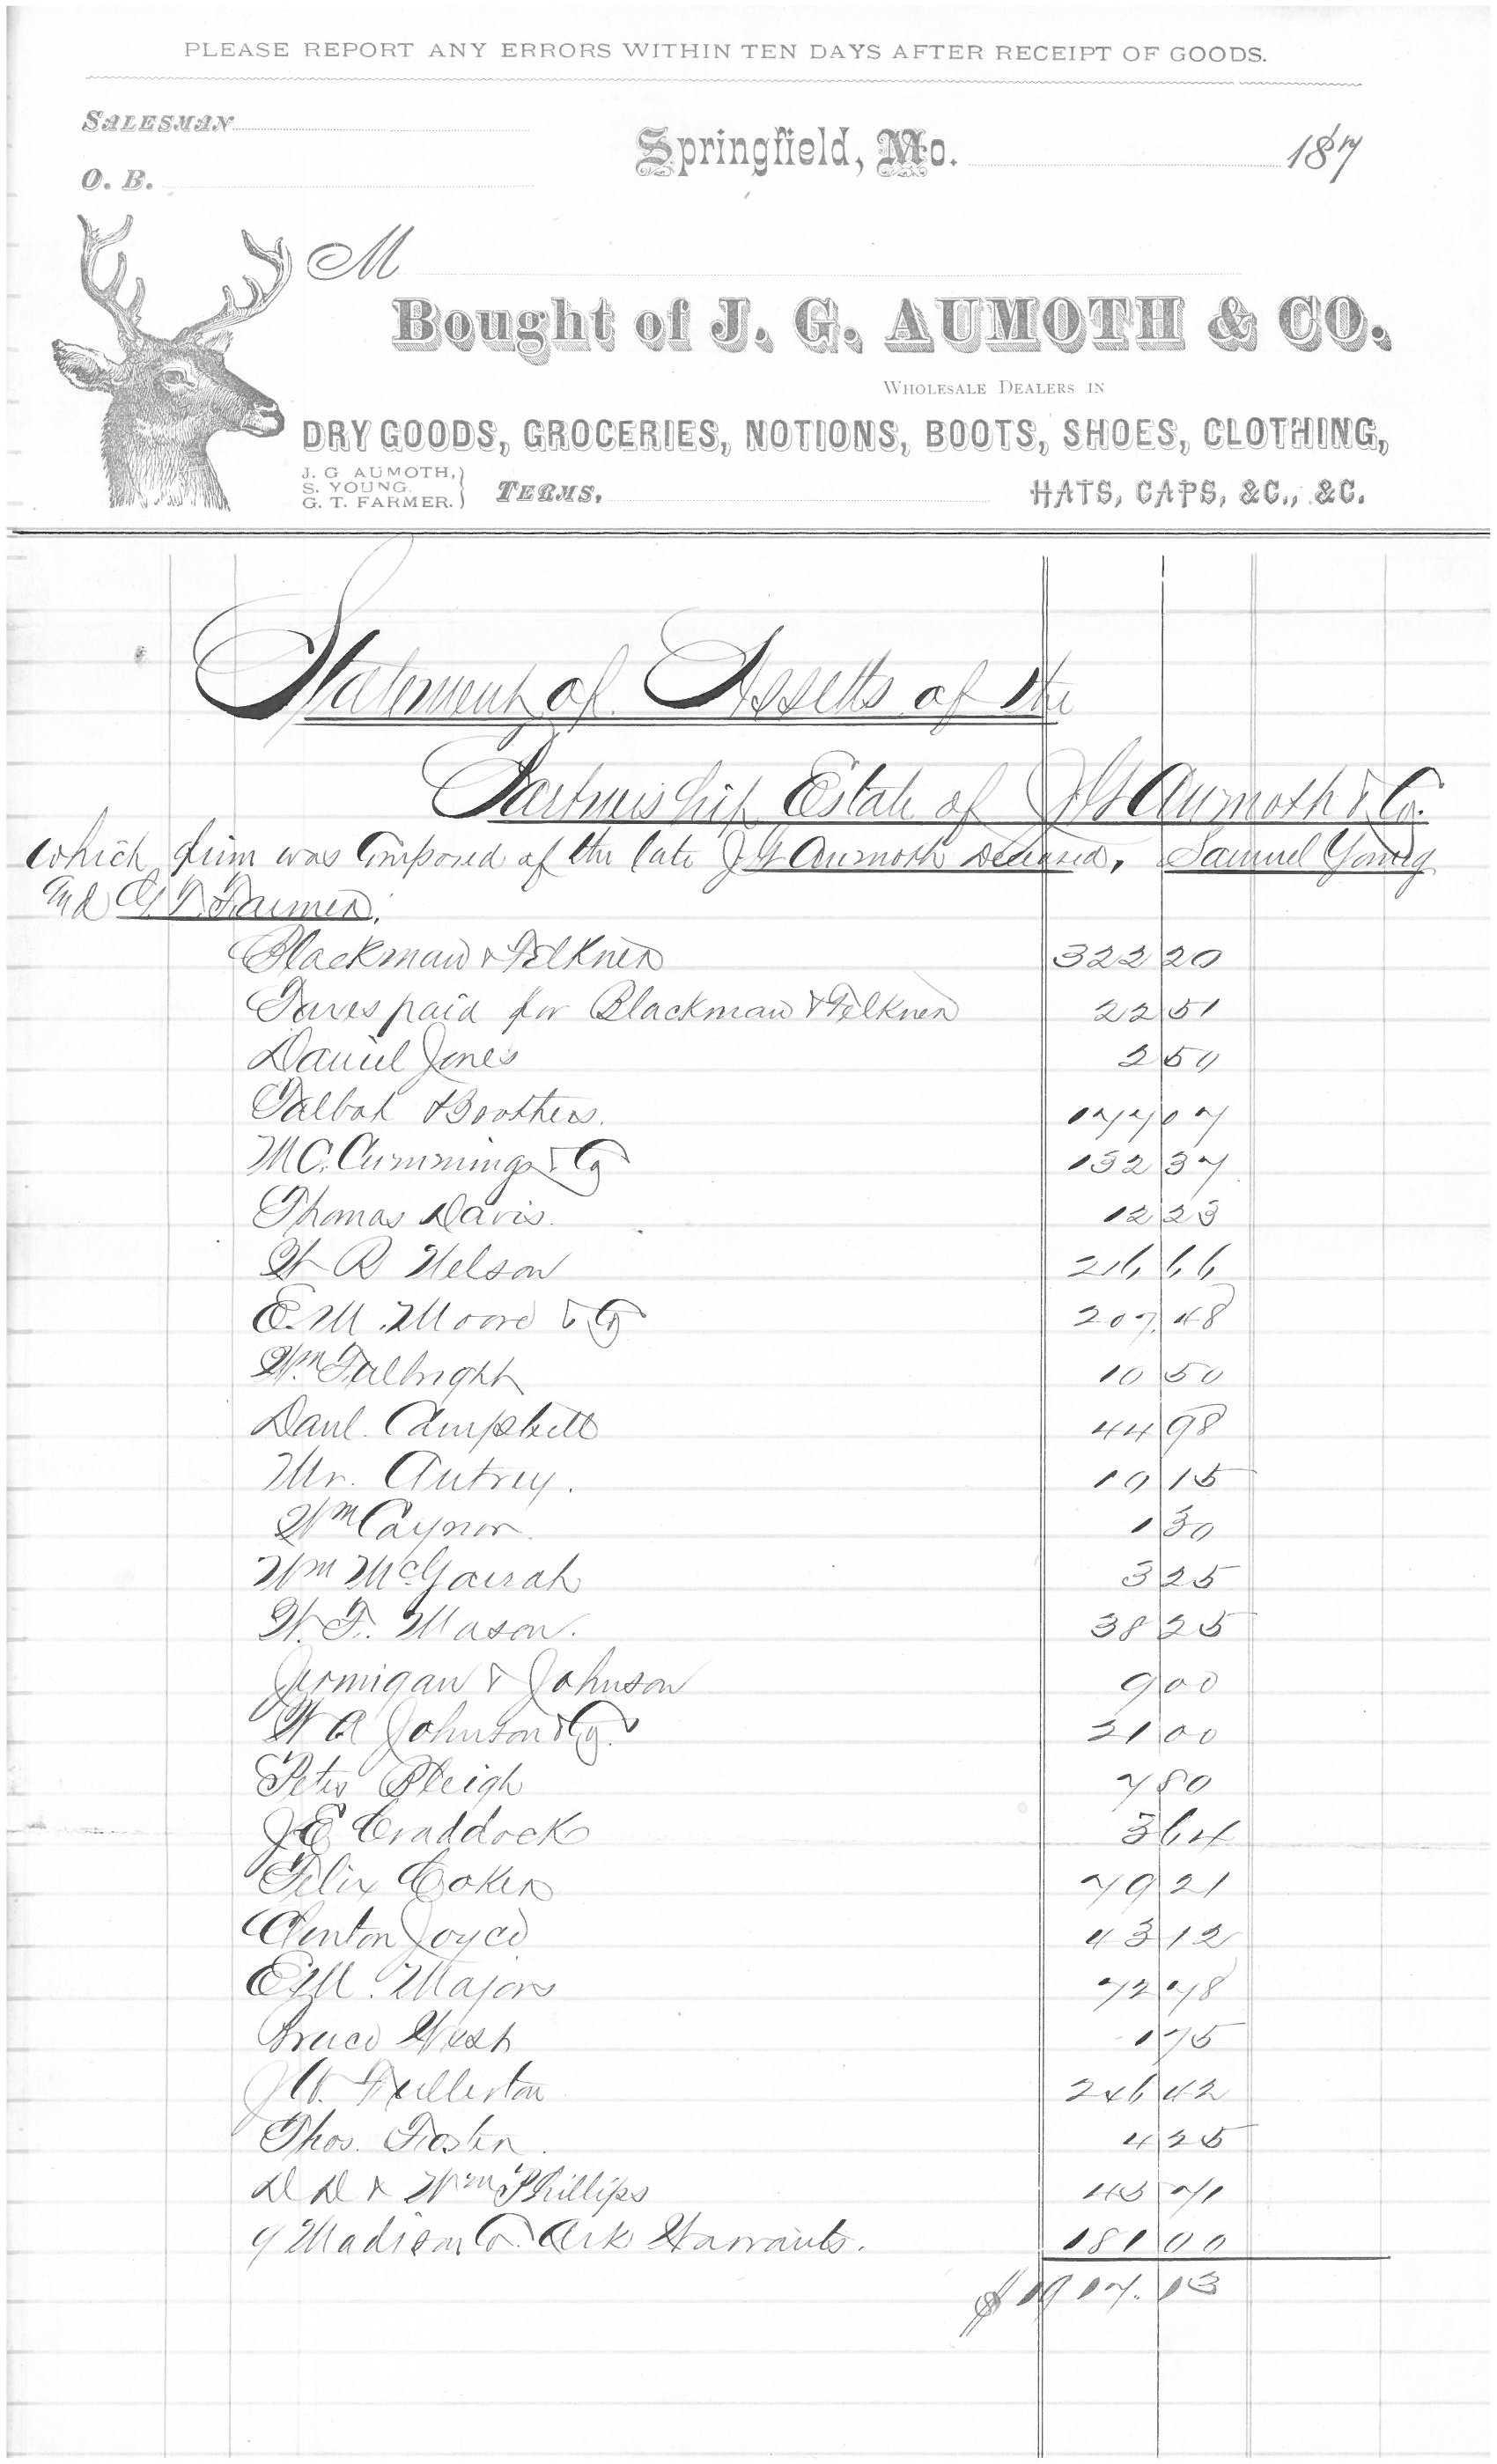 PLEASE REPORT ANY ERRORS WITHIN TEN DAYS AFTER RECEIPT OF GOODS.
SALESMAN
Springfield, Mo. 187
O. B.
M
Bought of J. G. AUMOTH & CO.
WHOLESALE DEALERS IN
DRY GOODS, GROCERIES, NOTIONS, BOOTS, SHOES, CLOTHING,
J. G AUMOTH,
S. YOUNG.
G. T. FARMER.
TERMS,
HATS, CAPS, &C., &C.
Statement of Assetts of the
Partnership Estate of J G Aumoth & Co.
which firm was Composed of the late J G Aumoth Deceased, Samuel Young
and G T Farmer.
Blackman & Felkner 322 20
Taxes paid for Blackman & Felkner 22 51
Daniel Jones 2 50
Talbot & Brothers. 177 07
M C. Cummings & Co 132 37
Thomas Davis. 12 23
W B Nelson 216 66
E. M. Moore & Co 207. 48
Wm Fulbright 10 50
Danl. Campbell 44 98
Mr. Autrey. 10 15
Wm Caynor. 1 30
Wm McGairah 3 25
W. F. Mason. 38 25
Jernigan & Johnson 9 00
W A Johnson & Co. 21 00
Peter Bleigh 7 80
J E Craddock 3 64
Felix Coker 79 21
Clinton Joyce 43 12
E M. Majors 72 78
Bruce West 1 75
J W. Fullerton 246 42
Thos. Foster. 4 25
D D & Wm Phillips 45 71
9 Madison Co. Ark Warrants. 181 00
$ 1917. 13